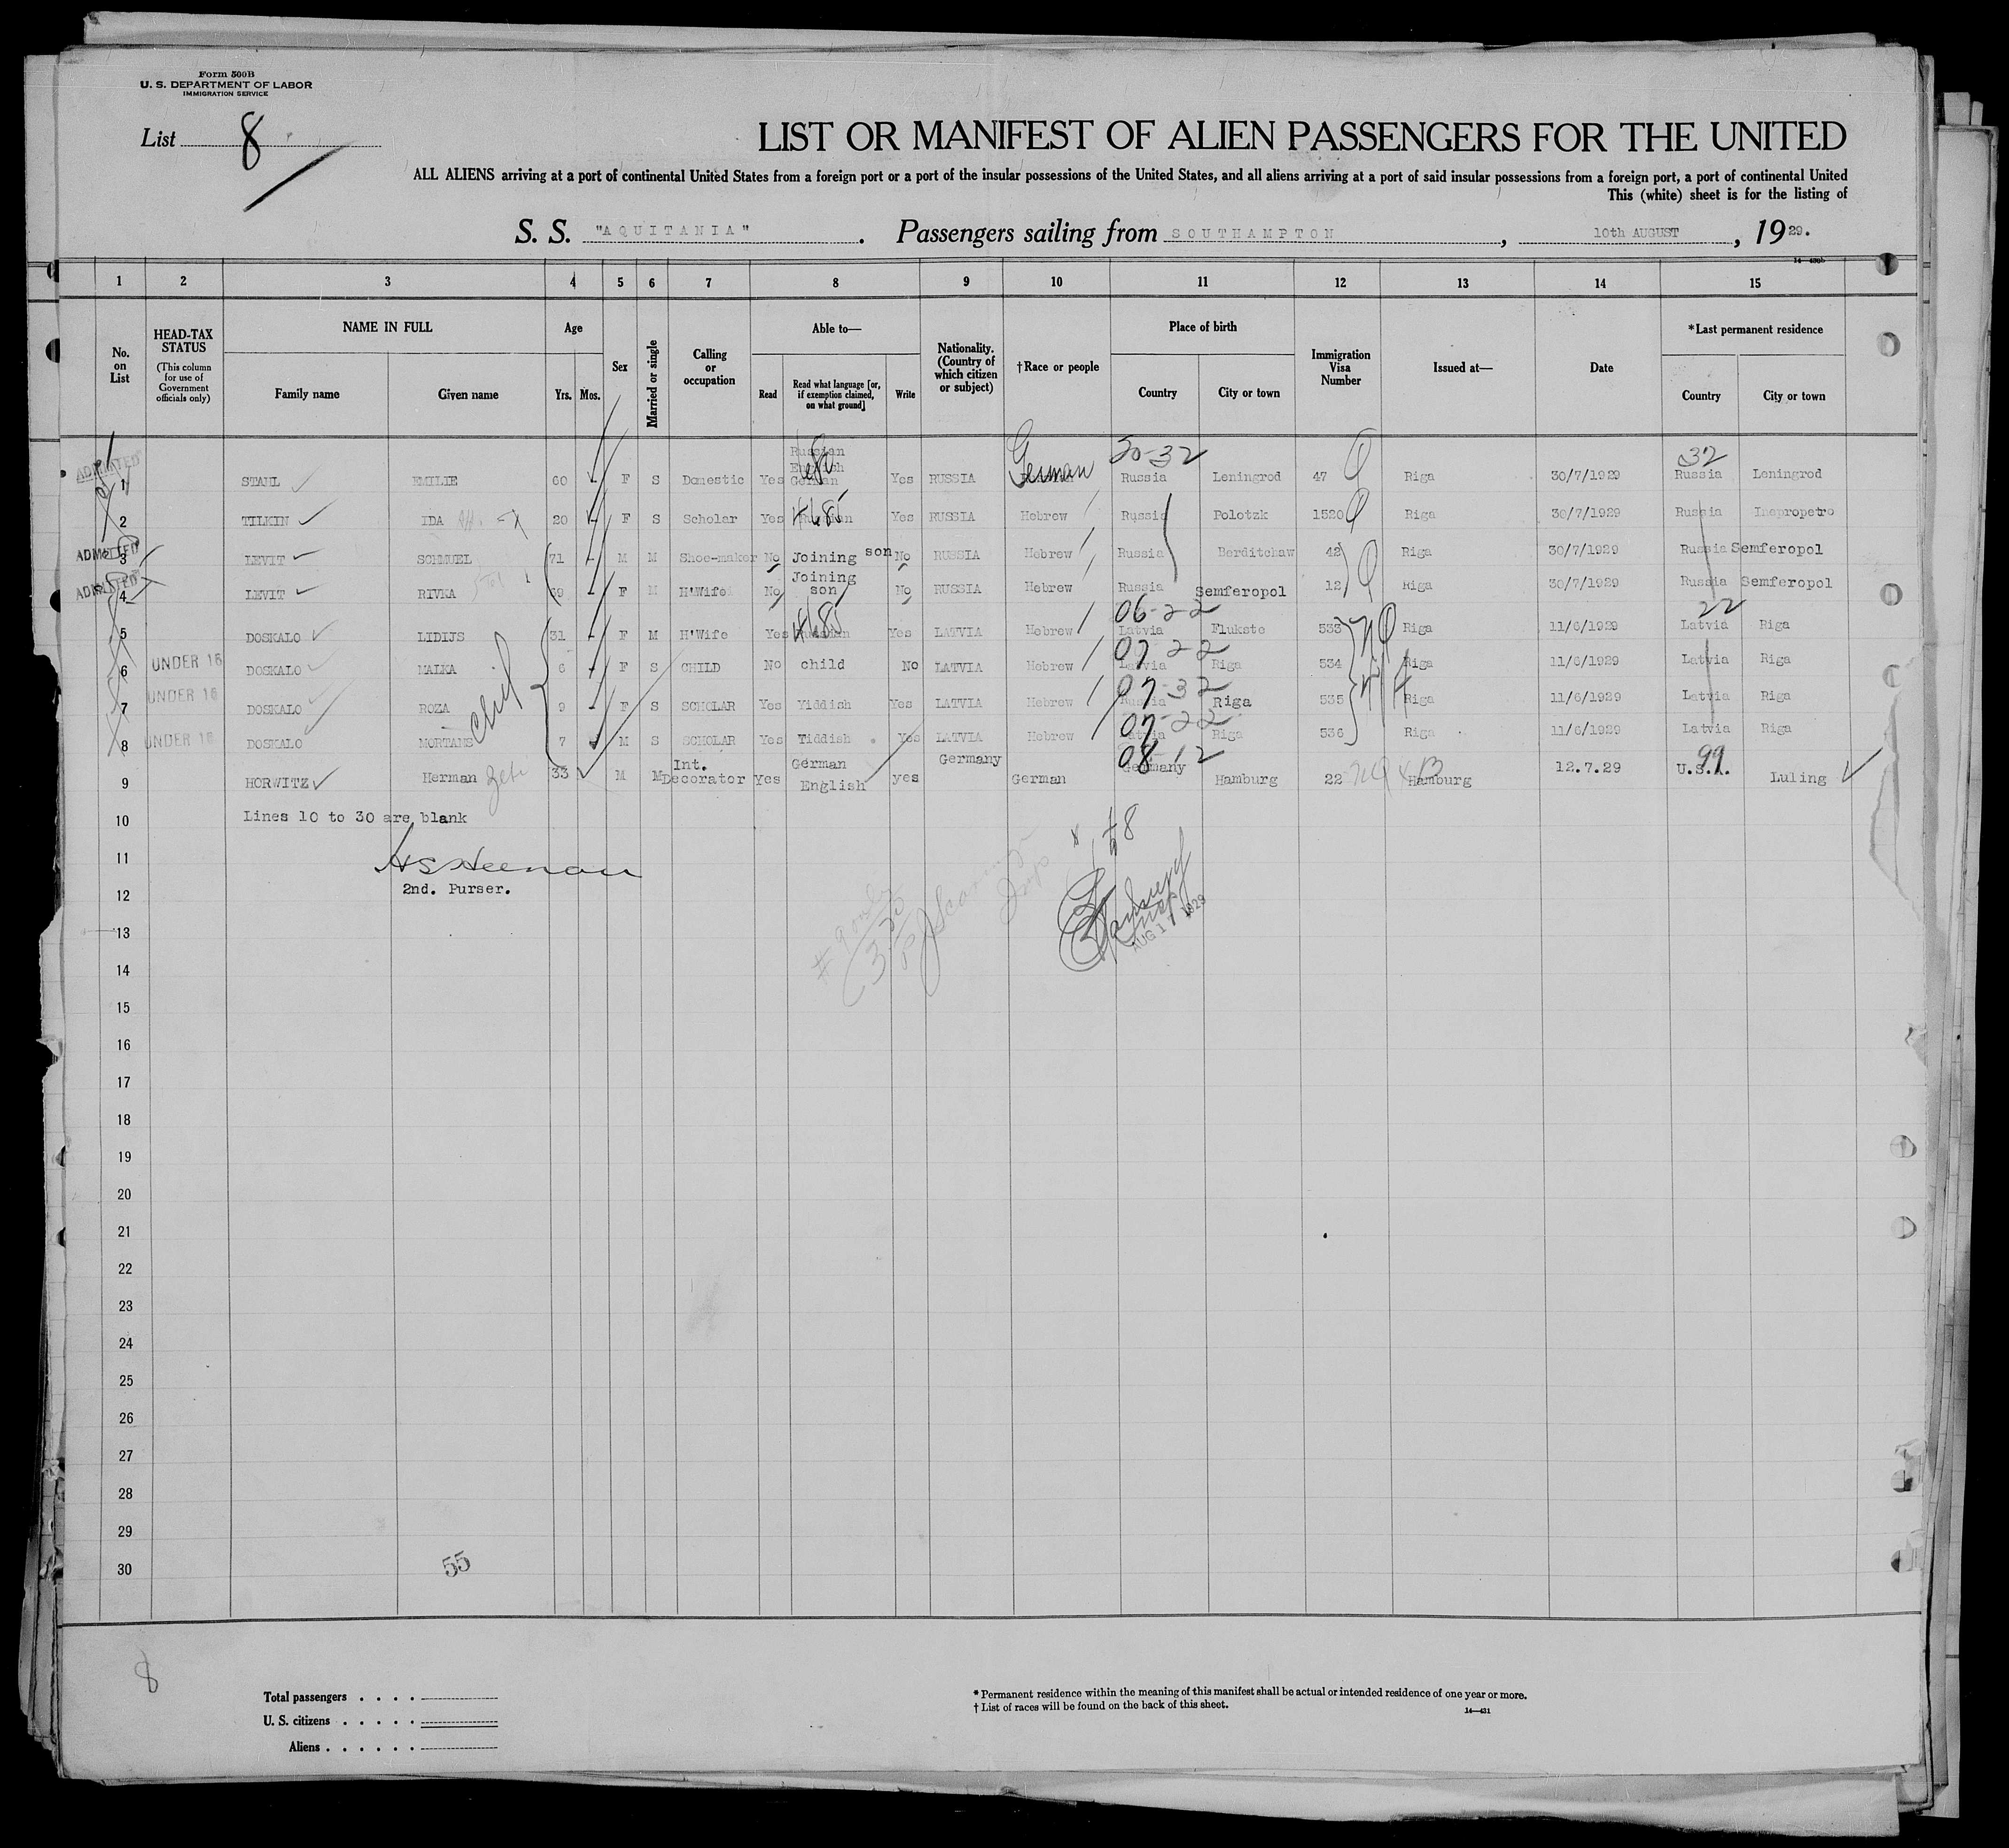 Form 500B
U. S. DEPARTMENT OF LABOR
IMMIGRATION SERVICE
List 8
LIST OR MANIFEST OF ALIEN PASSENGERS FOR THE UNITED
ALL ALIENS arriving at a port of continental United States from a foreign port or a port of the insular possessions of the United States, and all aliens arriving at a port of said insular possessions from a foreign port, a port of continental United
This (white) sheet is for the listing of
S. S. "AQUITANIA". Passengers sailing from SOUTHAMPTON, 10th AUGUST, 1929.
1 2 3 4 5 6 7 8 9 10 11 12 13 14 15
No. on List
HEAD-TAX STATUS (This column for use of Government officials only)
NAME IN FULL Family name Given name
Age Yrs. Mos.
Sex
Married or single
Calling or occupation
Able to— Read Read what language [or, if exemption claimed, on what ground] Write
Nationality. (Country of which citizen or subject)
†Race or people
Place of birth Country City or town
Immigration Visa Number
Issued at—
Date
*Last permanent residence Country City or town
ADMITTED 1 STAHL EMILIE 60 F S Domestic Yes Russian English German Yes RUSSIA German 30-32 Russia Leningrod 47 Riga 30/7/1929 32 Russia Leningrod
2 TILKIN IDA 20 F S Scholar Yes Russian Yes RUSSIA Hebrew Russia Polotzk 1520 Riga 30/7/1929 Russia Inepropetro
ADMITTED 3 LEVIT SCHMUEL 71 M M Shoe-maker No Joining son No RUSSIA Hebrew Russia Berditchaw 42 Riga 30/7/1929 Russia Semferopol
ADMITTED 4 LEVIT RIVKA 69 F M H'Wife No Joining son No RUSSIA Hebrew Russia Semferopol 12 Riga 30/7/1929 Russia Semferopol
5 DOSKALO LIDIJS 31 F M H'Wife Yes Russian Yes LATVIA Hebrew 06-22 Latvia Flukste 533 Riga 11/6/1929 22 Latvia Riga
6 UNDER 16 DOSKALO MALKA 6 F S CHILD No child No LATVIA Hebrew 07 22 Latvia Riga 534 Riga 11/6/1929 Latvia Riga
7 UNDER 16 DOSKALO ROZA 9 F S SCHOLAR Yes Yiddish Yes LATVIA Hebrew 07-32 Russia Riga 535 Riga 11/6/1929 Latvia Riga
8 UNDER 16 DOSKALO MORTAHS 7 M S SCHOLAR Yes Yiddish Yes LATVIA Hebrew 07-22 Latvia Riga 536 Riga 11/6/1929 Latvia Riga
9 HORWITZ Herman 33 M M Int. Decorator Yes German English yes Germany German 08 12 Germany Hamburg 22 Hamburg 12.7.29 99 U.S.A. Luling
10 Lines 10 to 30 are blank
11
2nd. Purser.
12
AUG 17 1929
13
14
15
16
17
18
19
20
21
22
23
24
25
26
27
28
29
30
55
8
Total passengers
U. S. citizens
Aliens
* Permanent residence within the meaning of this manifest shall be actual or intended residence of one year or more.
† List of races will be found on the back of this sheet.
14—431